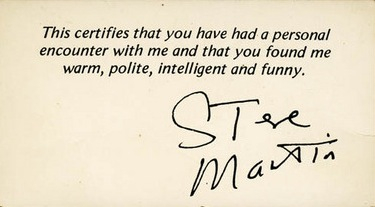 This certifies that you have had a personal
encounter with me and that you found me
warm, polite, intelligent and funny.
Steve
Martin